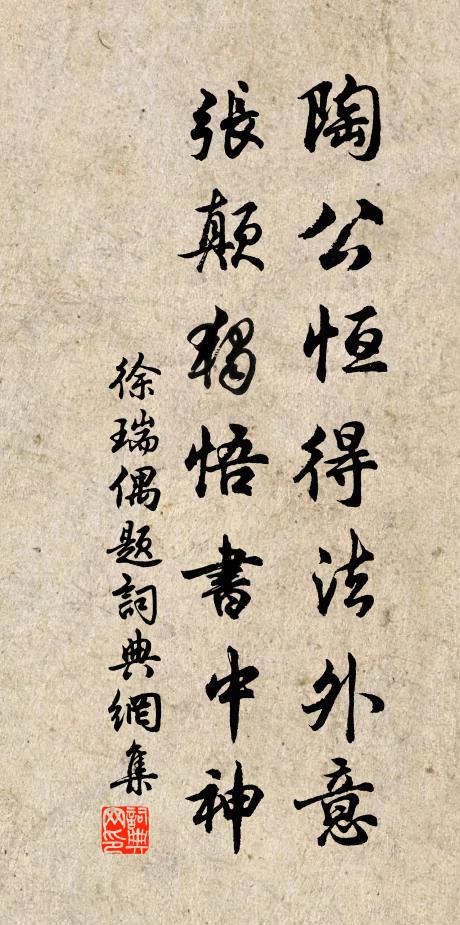 陶公恒得法外意
張顛獨悟書中神
徐瑞偶題詞典網集
詞典
网印